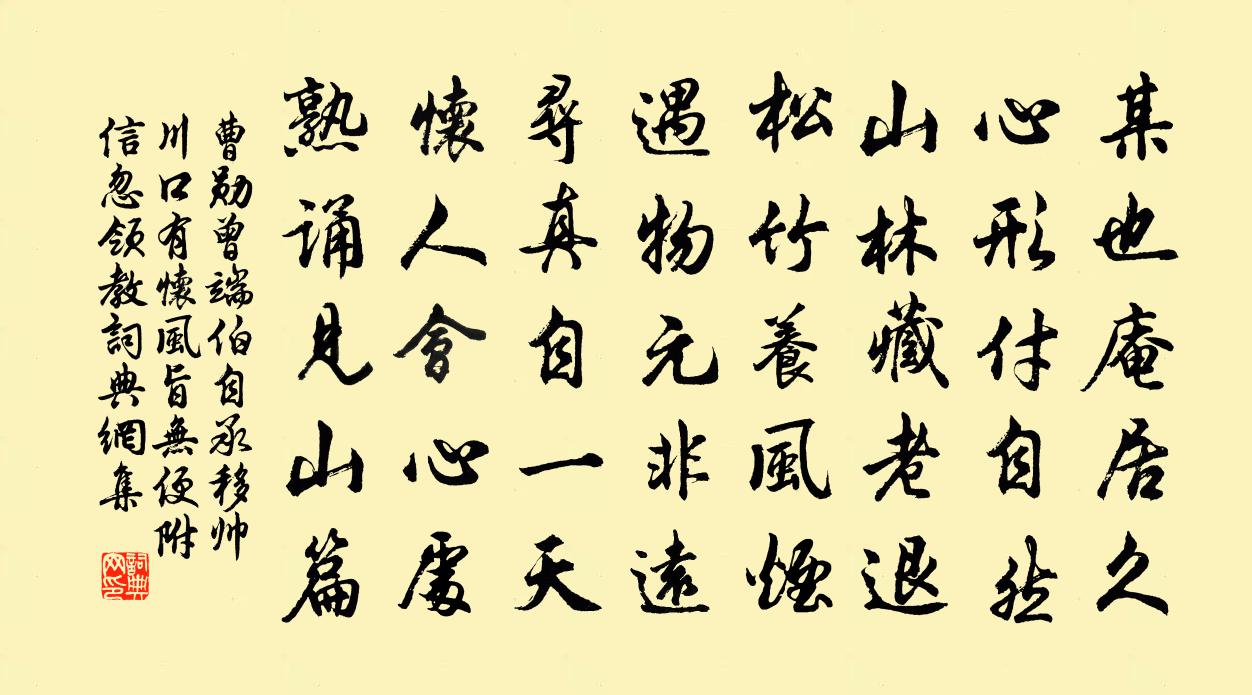 某也庵居久
心形付自然
山林藏老退
松竹養風煙
遇物元非遠
尋真自一天
懷人會心處
熟誦見山篇
曹勛曾端伯自承移帅
川口有懷風旨無便附
信忽領教詞典網集
詞典
网印